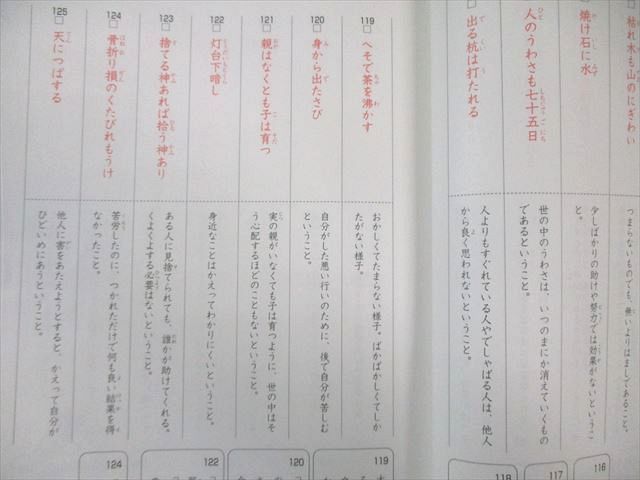 枯れ木も山のにぎわい
つまらないものでも、無いよりはましであること。
焼け石に水
少しばかりの助けや努力では効果がないというこ
と。
人のうわさも七十五日
世の中のうわさは、いつのまにか消えていくもの
であるということ。
出る杭は打たれる
人よりもすぐれている人やでしゃばる人は、他人
から良く思われないということ。
119
へそで茶を沸かす
おかしくてたまらない様子。ばかばかしくてしか
たがない様子。
120
身から出たさび
自分がした悪い行いのために、後で自分が苦しむ
ということ。
121
親はなくとも子は育つ
実の親がいなくても子は育つように、世の中はそ
う心配するほどのこともないということ。
122
灯台下暗し
身近なことはかえってわかりにくいということ。
123
捨てる神あれば拾う神あり
ある人に見捨てられても、誰かが助けてくれる。
くよくよする必要はないということ。
124
骨折り損のくたびれもうけ
苦労したのに、つかれただけで何も良い結果を得
なかったこと。
125
天につばする
他人に害をあたえようとすると、かえって自分が
ひどいめにあうということ。
116
117
118
119
120
122
124